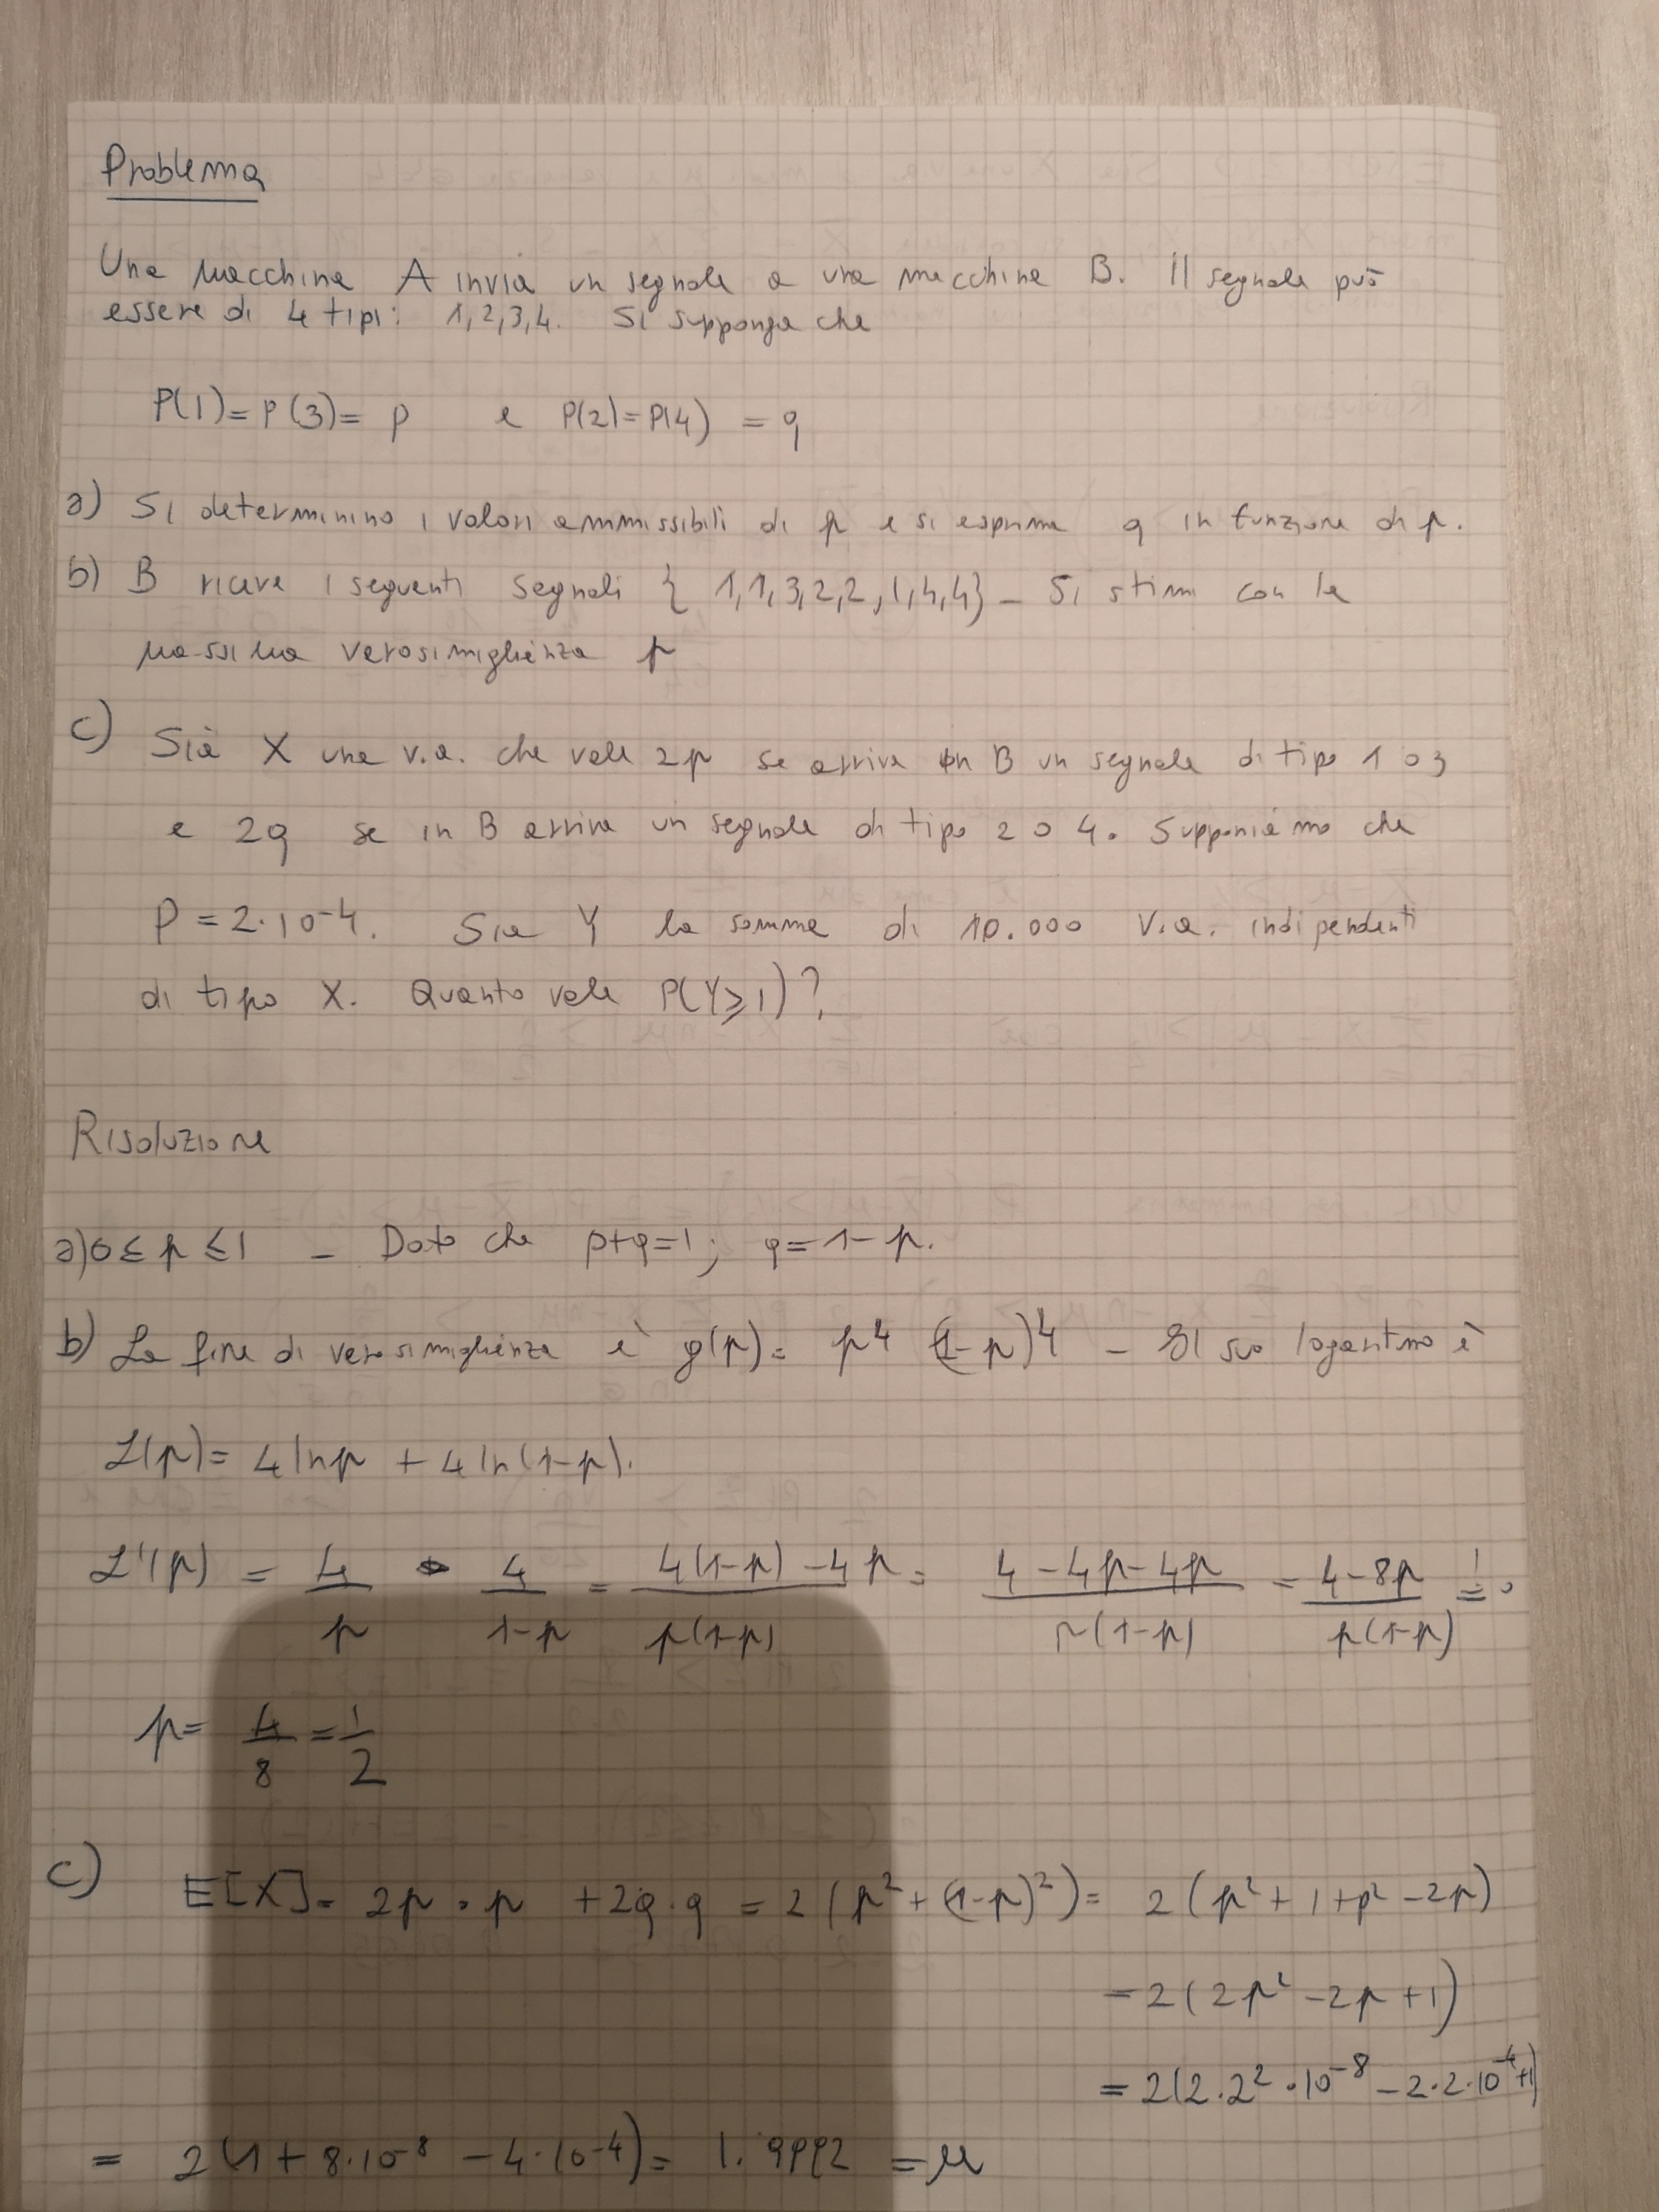 Problema
Una macchina A invia un segnale a una macchina B. Il segnale può
essere di 4 tipi: 1,2,3,4. Si supponga che
P(1)=P(3)= p e P(2)=P(4) = q
a) Si determinino i valori ammissibili di p e si esprima q in funzione di p.
b) B riceve i seguenti segnali { 1,1,3,2,2,1,4,4} - Si stimi con la
massima verosimiglianza p
c) Sia X una v.a. che vale 2p se arriva in B un segnale di tipo 1 o 3
e 2q se in B arriva un segnale di tipo 2 o 4. Supponiamo che
P = 2·10-4. Sia Y la somma di 10.000 v.a. indipendenti
di tipo X. Quanto vale P(Y≥1)?
Risoluzione
a) 0 ≤ p ≤ 1 - Dato che p+q=1; q=1-p.
b) La fine di verosimiglianza è g(p)= p⁴ (1-p)⁴ - Il suo logaritmo è
L(p)= 4lnp + 4ln(1-p).
L'(p) = 4/p - 4/1-p = 4(1-p)-4p/p(1-p) = 4-4p-4p/p(1-p) = 4-8p/p(1-p) =! 0
p= 4/8 = 1/2
c) E[X]= 2p · p + 2q·q = 2(p²+(1-p)²)= 2(p²+1+p²-2p)
= 2(2p²-2p+1)
= 2(2·2²·10⁻⁸ - 2·2·10⁻⁴+1)
= 2(1+8·10-⁸ - 4·10-⁴)= 1.9992 = μ